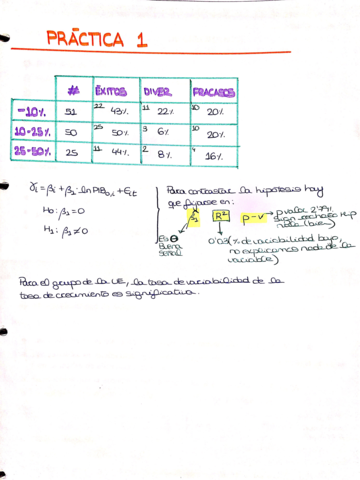 PRÁCTICA 1
# ÉXITOS DIVER. FRACASOS
-10% 51 22 43% 11 22% 10 20%
10-25% 50 25 50% 3 6% 10 20%
25-50% 25 11 44% 2 8% 4 16%
γi = βi + β1 · ln PIB0,i + Eit
H0: β1 = 0
H1: β1 ≠ 0
Para contrastar la hipotesis hay
que fijarse en:
β1 R² p-v → p valor 2'79%
sign. rechazo hip
nula (bien)
Es ⊖
Buena
señal
0'03 (% de variabilidad bajo,
no explicamos nada de la
variable)
Para el grupo de la UE, la tasa de variabilidad de la
tasa de crecimiento es significativa.